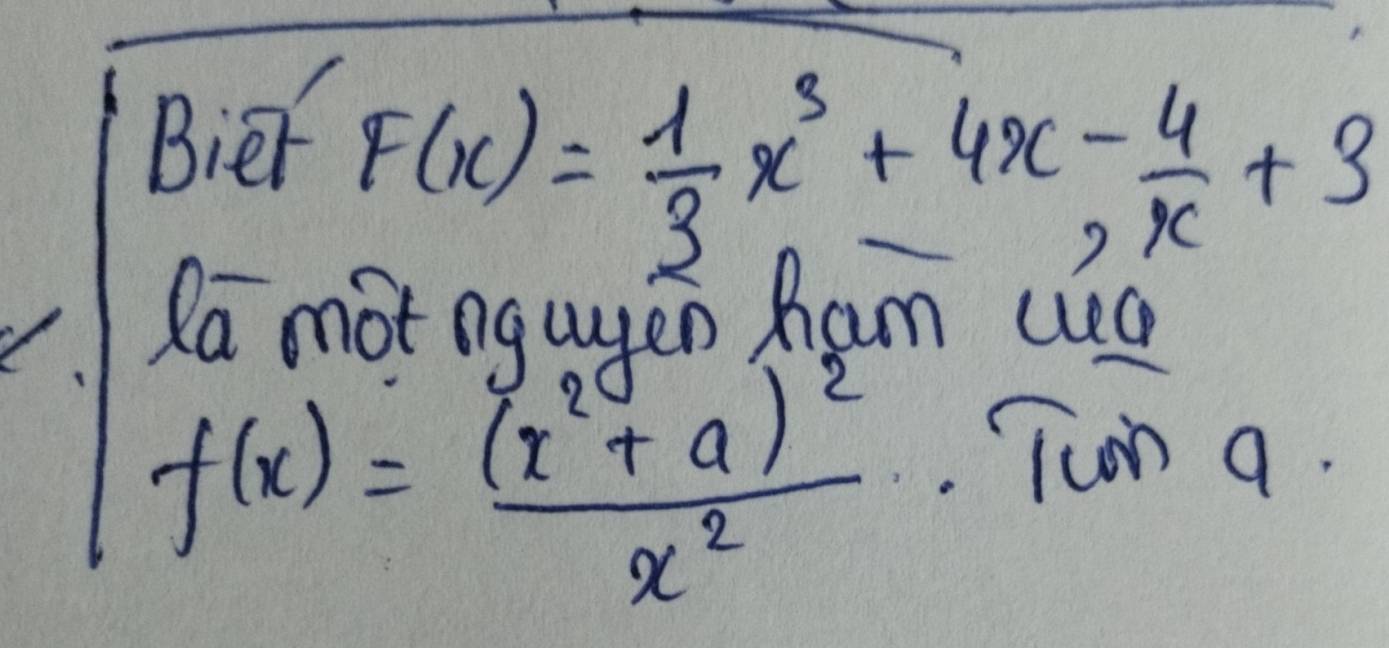 Biết F(x) = 1/3 x³ + 4x - 4/x + 3
là một nguyên hàm của
f(x) = (x² + a)² / x² . Tìm a.